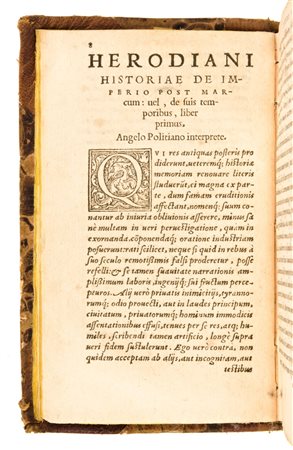 8
HERODIANI
HISTORIAE DE IM-
PERIO POST MAR-
cum: uel, de suis tem-
poribus, liber
primus.
Angelo Politiano interprete.
QVI res antiquas posteris pro
diderunt, ueteremq; historiæ
memoriam renouare literis
studuerūt, ei magna ex par-
te, dum famam eruditionis
affectant, nomenq; suum co-
nantur ab iniuria obliuionis asserere, minus sa
ne multam in ueri peruestigatione, quam in
exornanda, cōponendaq; oratione industriam
posuerunt: rati scilicet, neque si quid in rebus à
suo seculo remotissimis falsi proderetur, posse
refelli: & se tamen suauitate narrationis am-
plissimum laboris, ingenijq; sui fructum perce-
pturos. Alij uerò priuatis inimicitijs, tyranno-
rumq; odio prouecti, aut in laudes principum,
ciuitatum, priuatorumq; hominum immodicis
assentationibus effusi, tenues per se res, atq; hu-
miles, scribendi tamen artificio, longè supra
ueri fidem sustulerunt. Ego uerò contra, non
quidem acceptam ab alijs, aut incognitam, aut
testibus